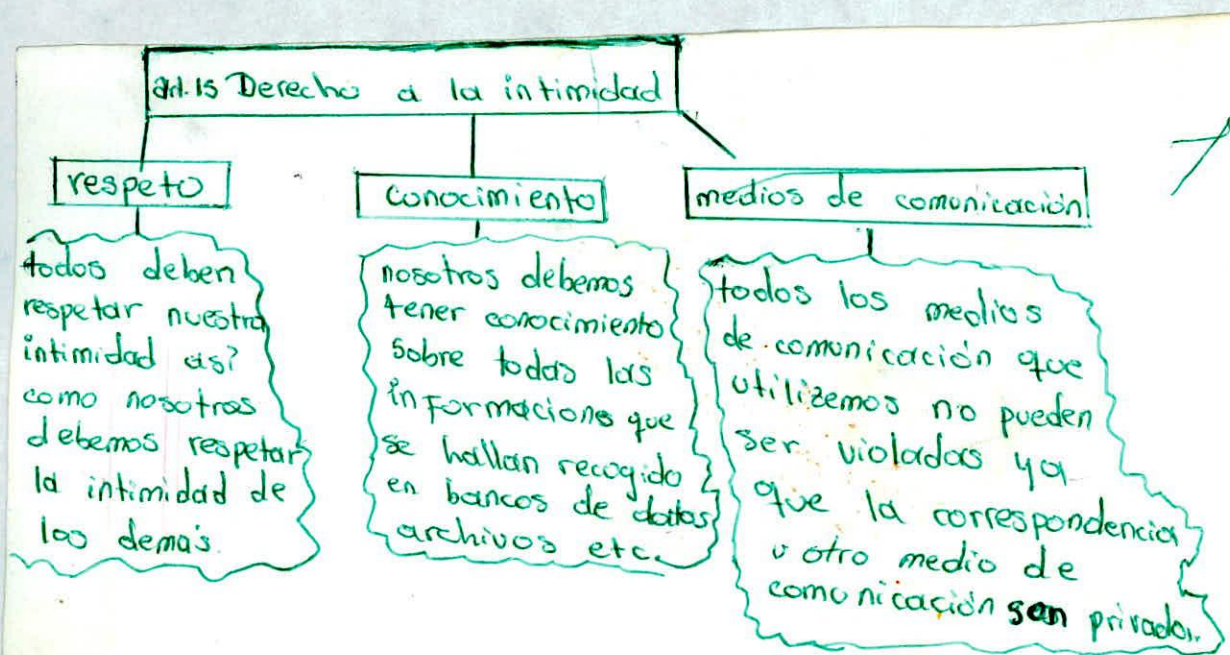 art. 15 Derecho a la intimidad
respeto
todos deben
respetar nuestra
intimidad así
como nosotros
debemos respetar
la intimidad de
los demás.
conocimiento
nosotros debemos
tener conocimiento
sobre todas las
informaciones que
se hallan recogido
en bancos de datos
archivos etc.
medios de comonicación
todos los medios
de comonicación que
utilizemos no pueden
ser violadas ya
que la correspondencia
u otro medio de
comonicación son privados.